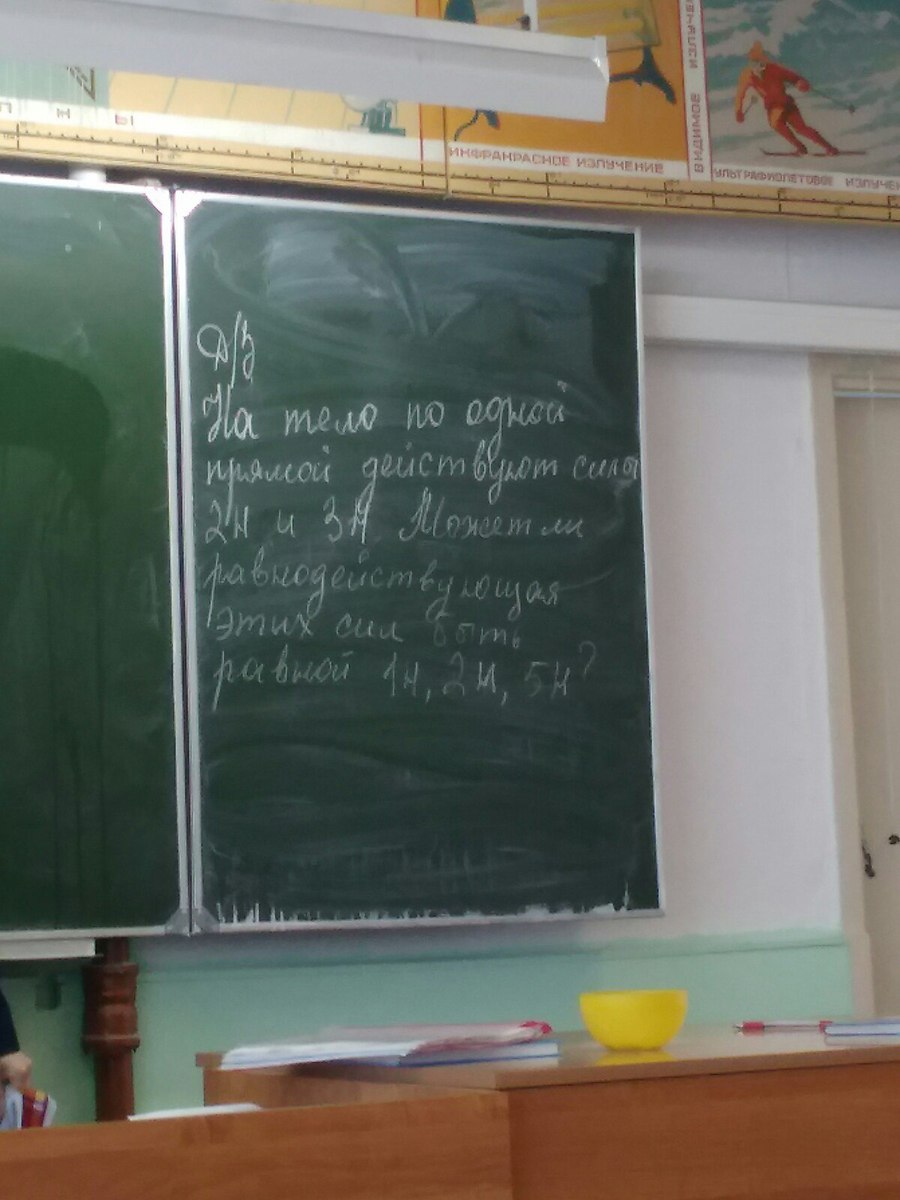 ИНФРАКРАСНОЕ ИЗЛУЧЕНИЕ
УЛЬТРАФИОЛЕТОВОЕ ИЗЛУЧЕН
Д/З
На тело по одной
прямой действуют силы
2Н и 3Н Может ли
равнодействующая
этих сил быть
равной 1Н, 2Н, 5Н?